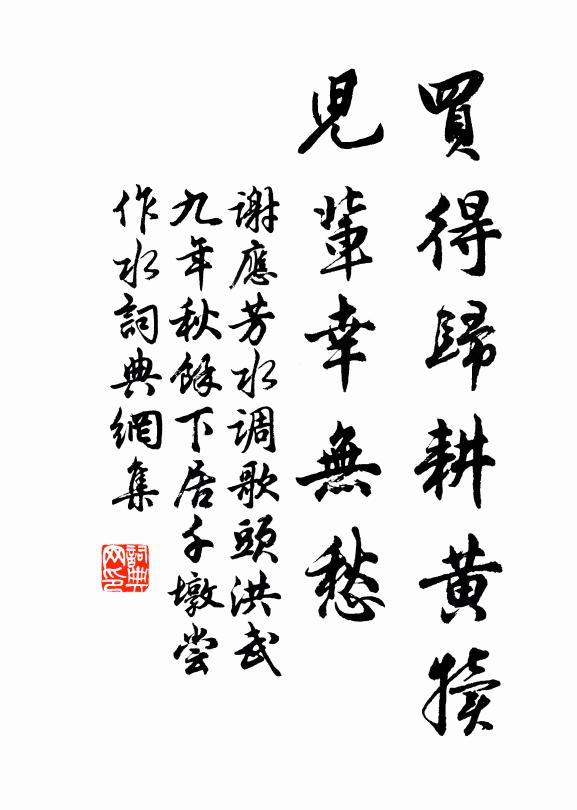 買得歸耕黃犢
兒輩幸無愁
謝應芳水调歌頭洪武
九年秋餘下居千墩嘗
作水詞典網集
詞典网印